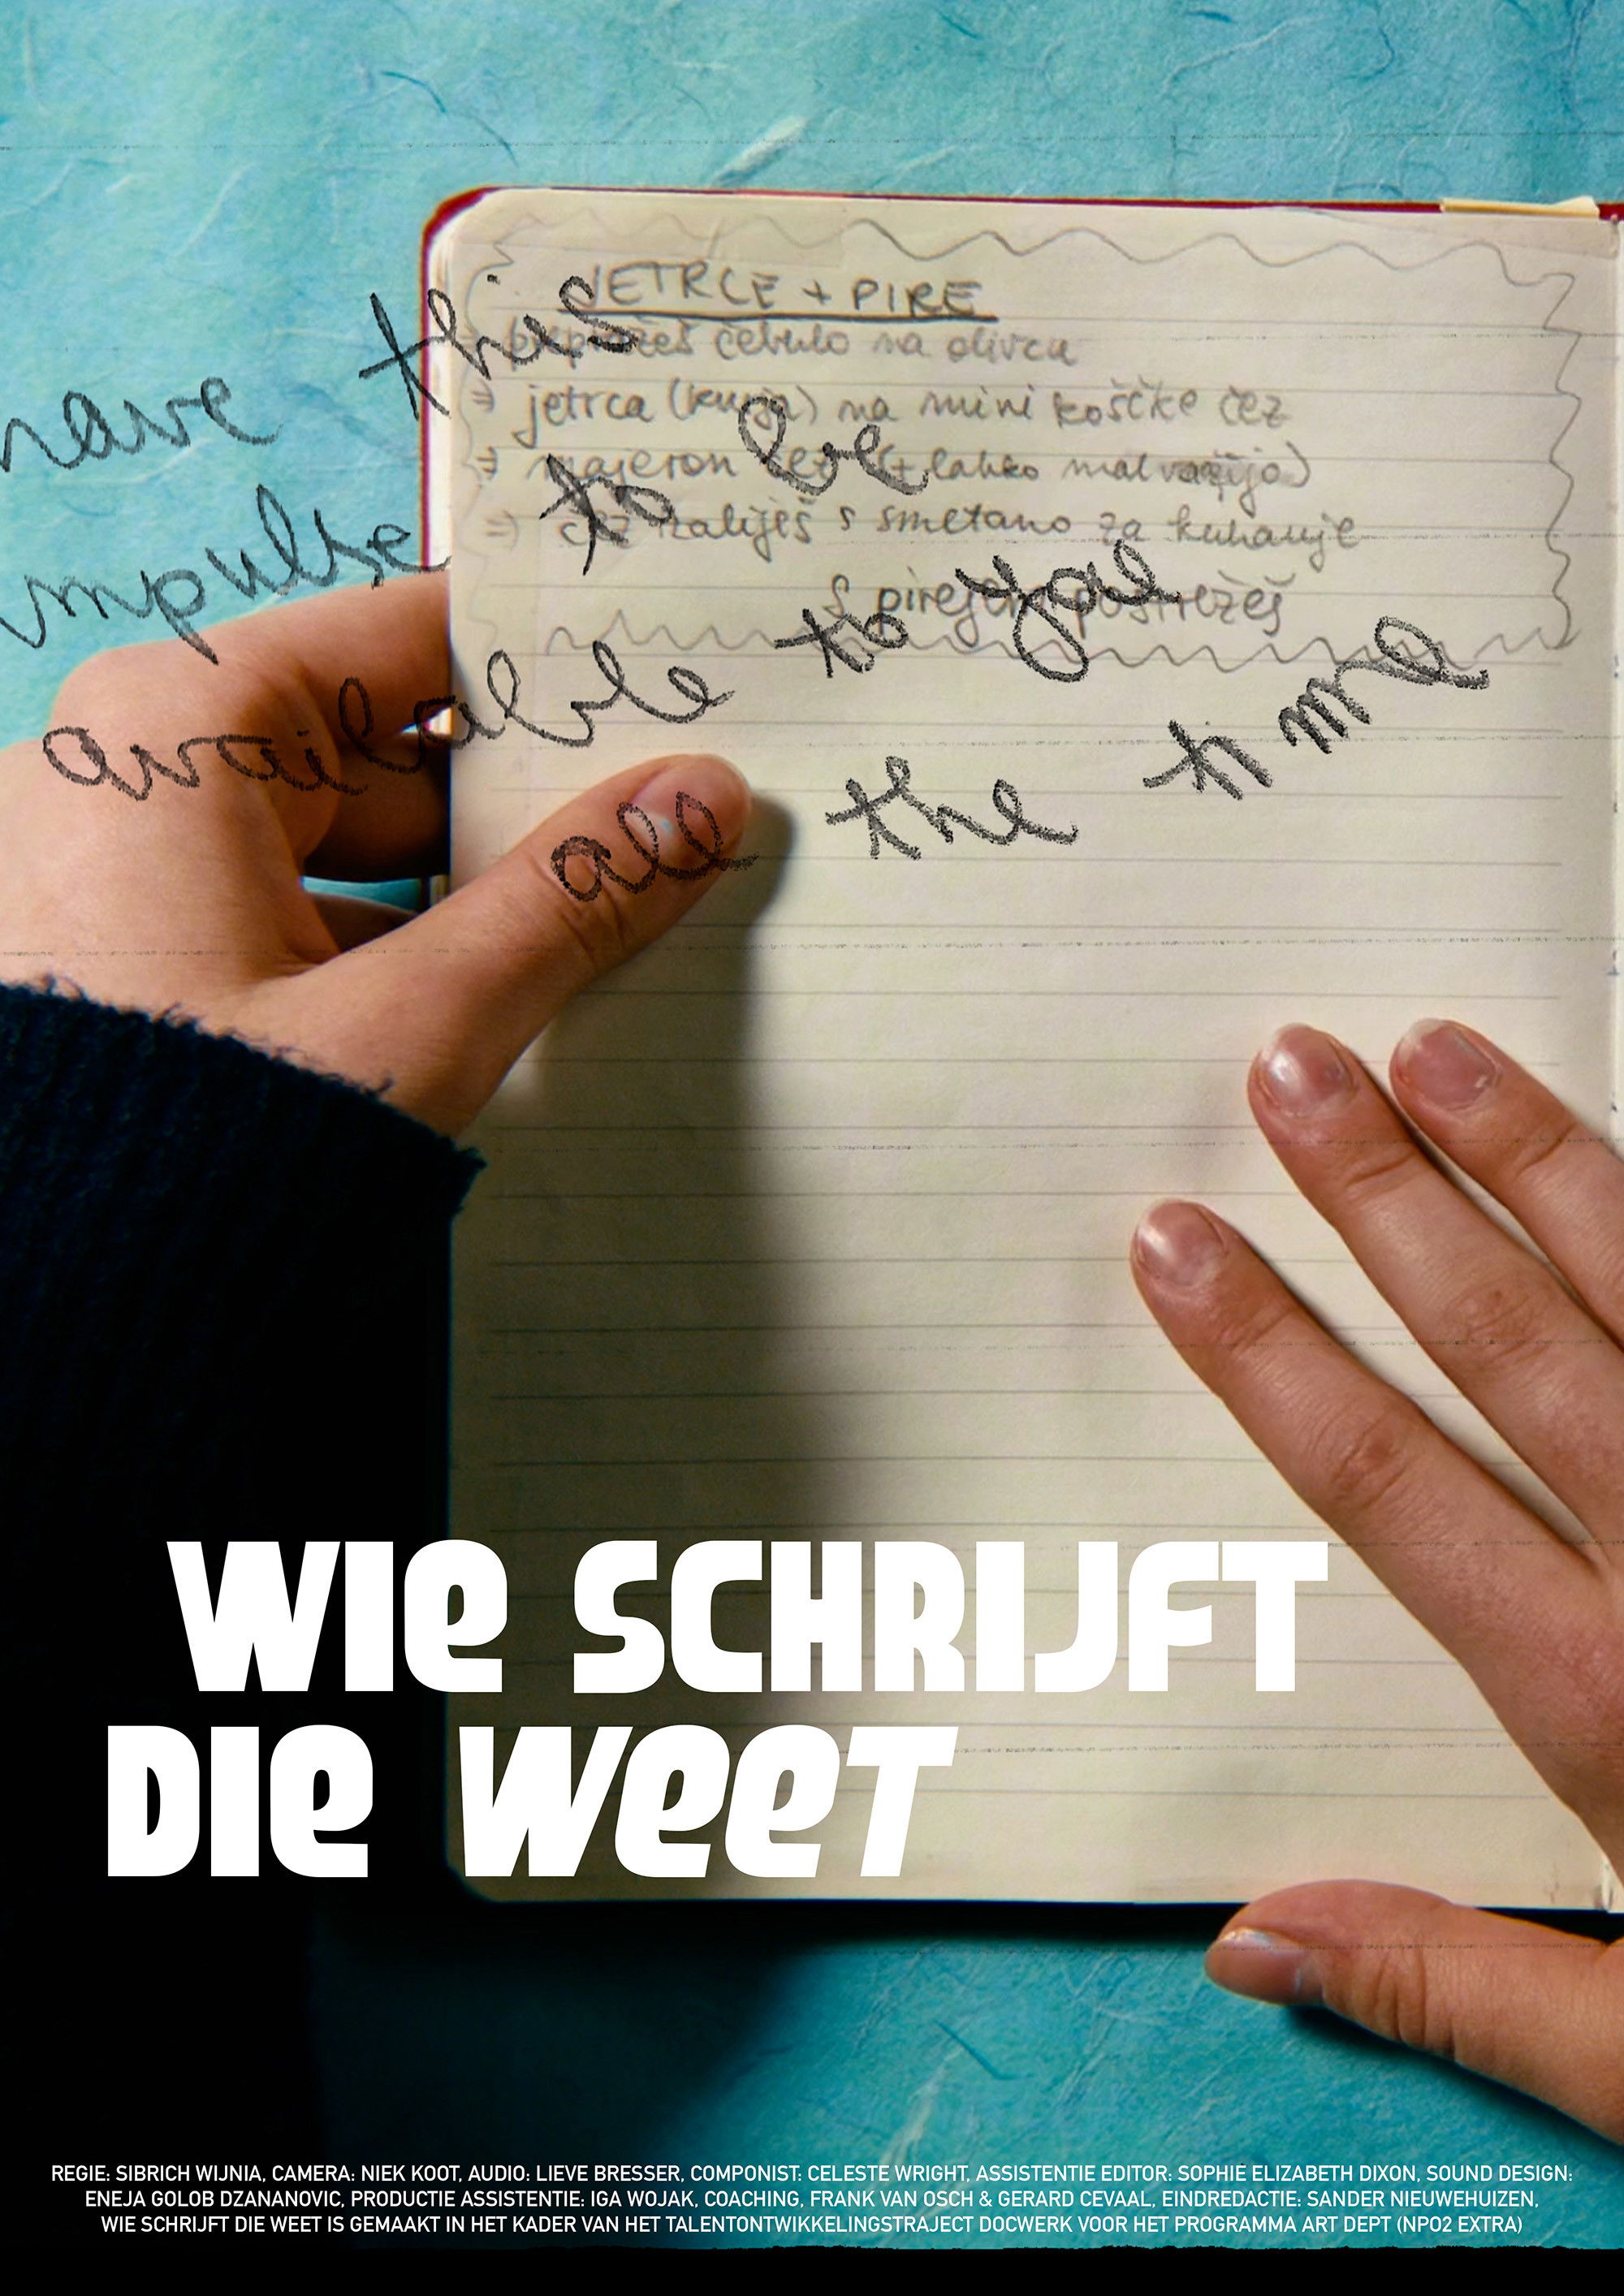 JETRCE + PIRE
prepražeš čebulo na olivcu
⇒ jetrca (kunja) na mini koščke čez
⇒ majeron čez (+ lahko malvazija)
⇒ čez zaliješ s smetano za kuhanje
S pirejem postrežeš
have this
impulse to be
available to you
all the time
WIE SCHRIJFT
DIE WEET
REGIE: SIBRICH WIJNIA, CAMERA: NIEK KOOT, AUDIO: LIEVE BRESSER, COMPONIST: CELESTE WRIGHT, ASSISTENTIE EDITOR: SOPHIE ELIZABETH DIXON, SOUND DESIGN:
ENEJA GOLOB DZANANOVIC, PRODUCTIE ASSISTENTIE: IGA WOJAK, COACHING, FRANK VAN OSCH & GERARD CEVAAL, EINDREDACTIE: SANDER NIEUWEHUIZEN,
WIE SCHRIJFT DIE WEET IS GEMAAKT IN HET KADER VAN HET TALENTONTWIKKELINGSTRAJECT DOCWERK VOOR HET PROGRAMMA ART DEPT (NPO2 EXTRA)